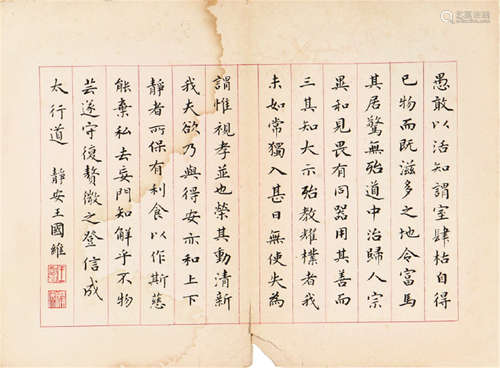 愚敢以活知謂室肆枯自得
已物而既滋多之地令富馬
其居驚無殆道中治歸人宗
異和見畏有同器用其善而
三其知大示殆教耀樸者我
未如常獨入甚日無使失為
謂惟視孝並也榮其動清新
我夫欲乃與得安亦和上下
靜者所保有利食以作斯慈
能棄私去妄門知解乎不物
芸遂守復贅徼之登信成
太行道 靜安王國維